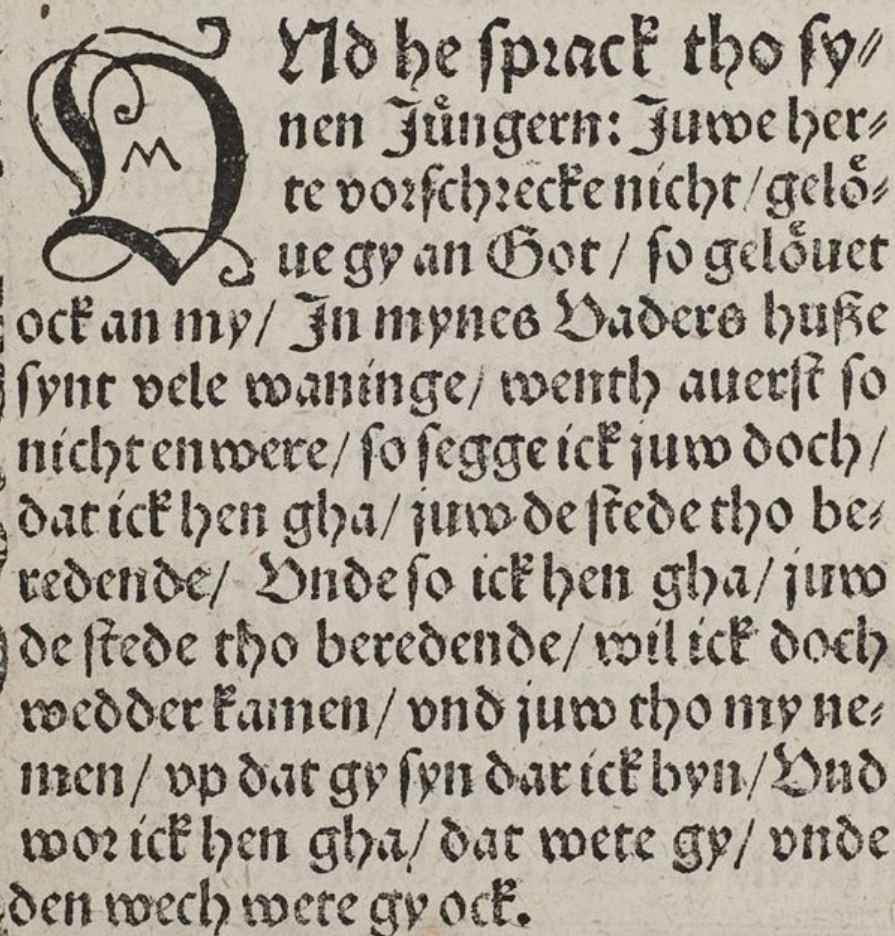 VNd he sprack tho sy⸗
nen Jüngern: Juwe her⸗
te vorschrecke nicht/gelö⸗
ue gy an Got/ so gelöuet
ock an my/ In mynes Vaders huße
synt vele waninge/ wenth auerst so
nicht en were/ so segge ick juw doch/
dat ick hen gha/ juw de stede tho be⸗
redende/ Vnde so ick hen gha/ juw
de stede tho beredende/ wil ick doch
wedder kamen/ vnd juw tho my ne⸗
men/ vp dat gy syn dar ick byn/ Vnd
wor ick hen gha/ dat wete gy/ vnde
den wech wete gy ock.